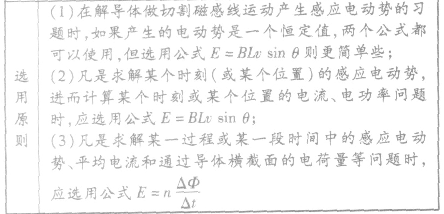 选用原则
(1)在解导体做切割磁感线运动产生感应电动势的习
题时,如果产生的电动势是一个恒定值,两个公式都
可以使用,但选用公式 E = BLv sin θ 则更简单些;
(2)凡是求解某个时刻(或某个位置)的感应电动势,
进而计算某个时刻或某个位置的电流、电功率问题
时,应选用公式 E = BLv sin θ;
(3)凡是求解某一过程或某一段时间中的感应电动
势、平均电流和通过导体横截面的电荷量等问题时,
应选用公式 E = n ΔΦ/Δt